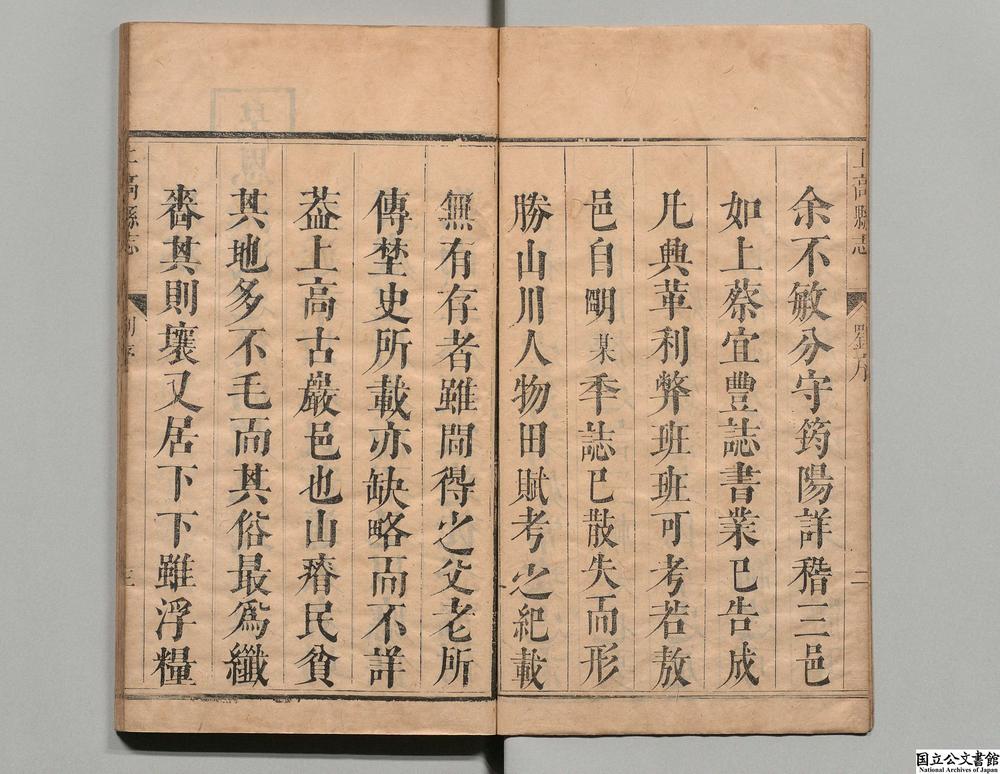 余不敏分守筠陽詳稽三邑
如上蔡宜豐誌書業已告成
凡興革利弊班班可考若敖
邑自剛某季誌已散失而形
勝山川人物田賦考之紀載
無有存者雖間得之父老所
傳埜史所載亦缺略而不詳
葢上高古巖邑也山瘠民貧
其地多不毛而其俗最為纖
嗇其則壤又居下下雖浮糧
上高縣志
序
二
上高縣志
序
三
国立公文書館
National Archives of Japan